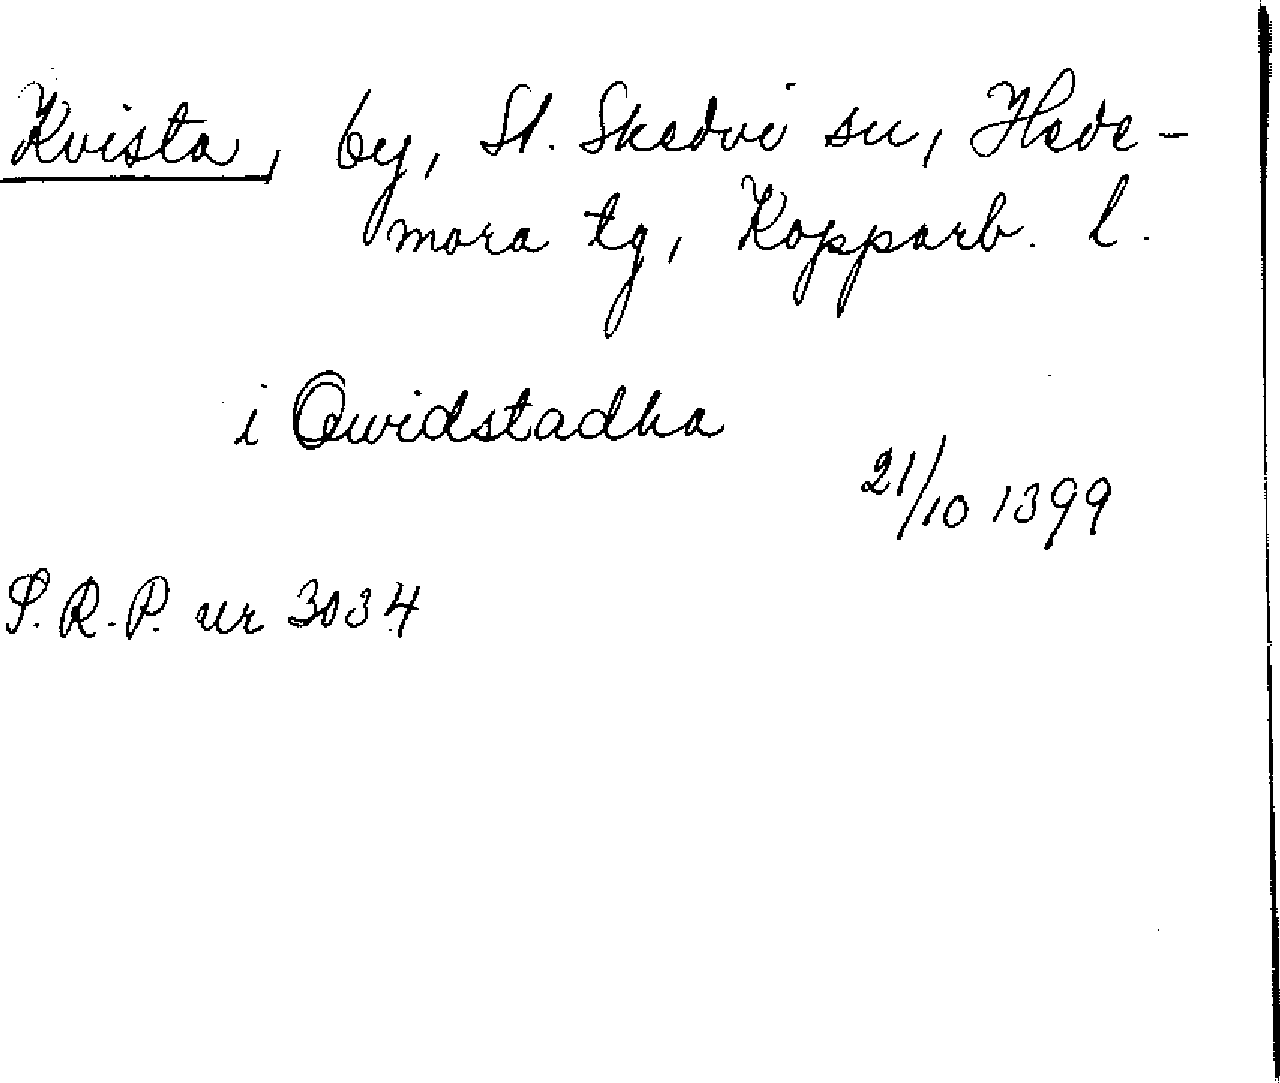 Kvista, by, St. Skedvi sn, Hede-
mora tg, Kopparb. l.
i Qwidstadha
21/10 1399
S.R.P. nr 3034